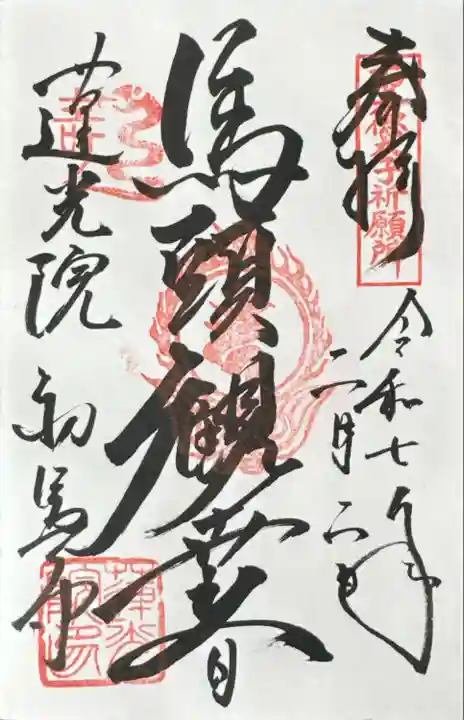 奉拝
徳太子祈願所
令和七年
二月六日
馬頭観音
蓮光院 初馬寺